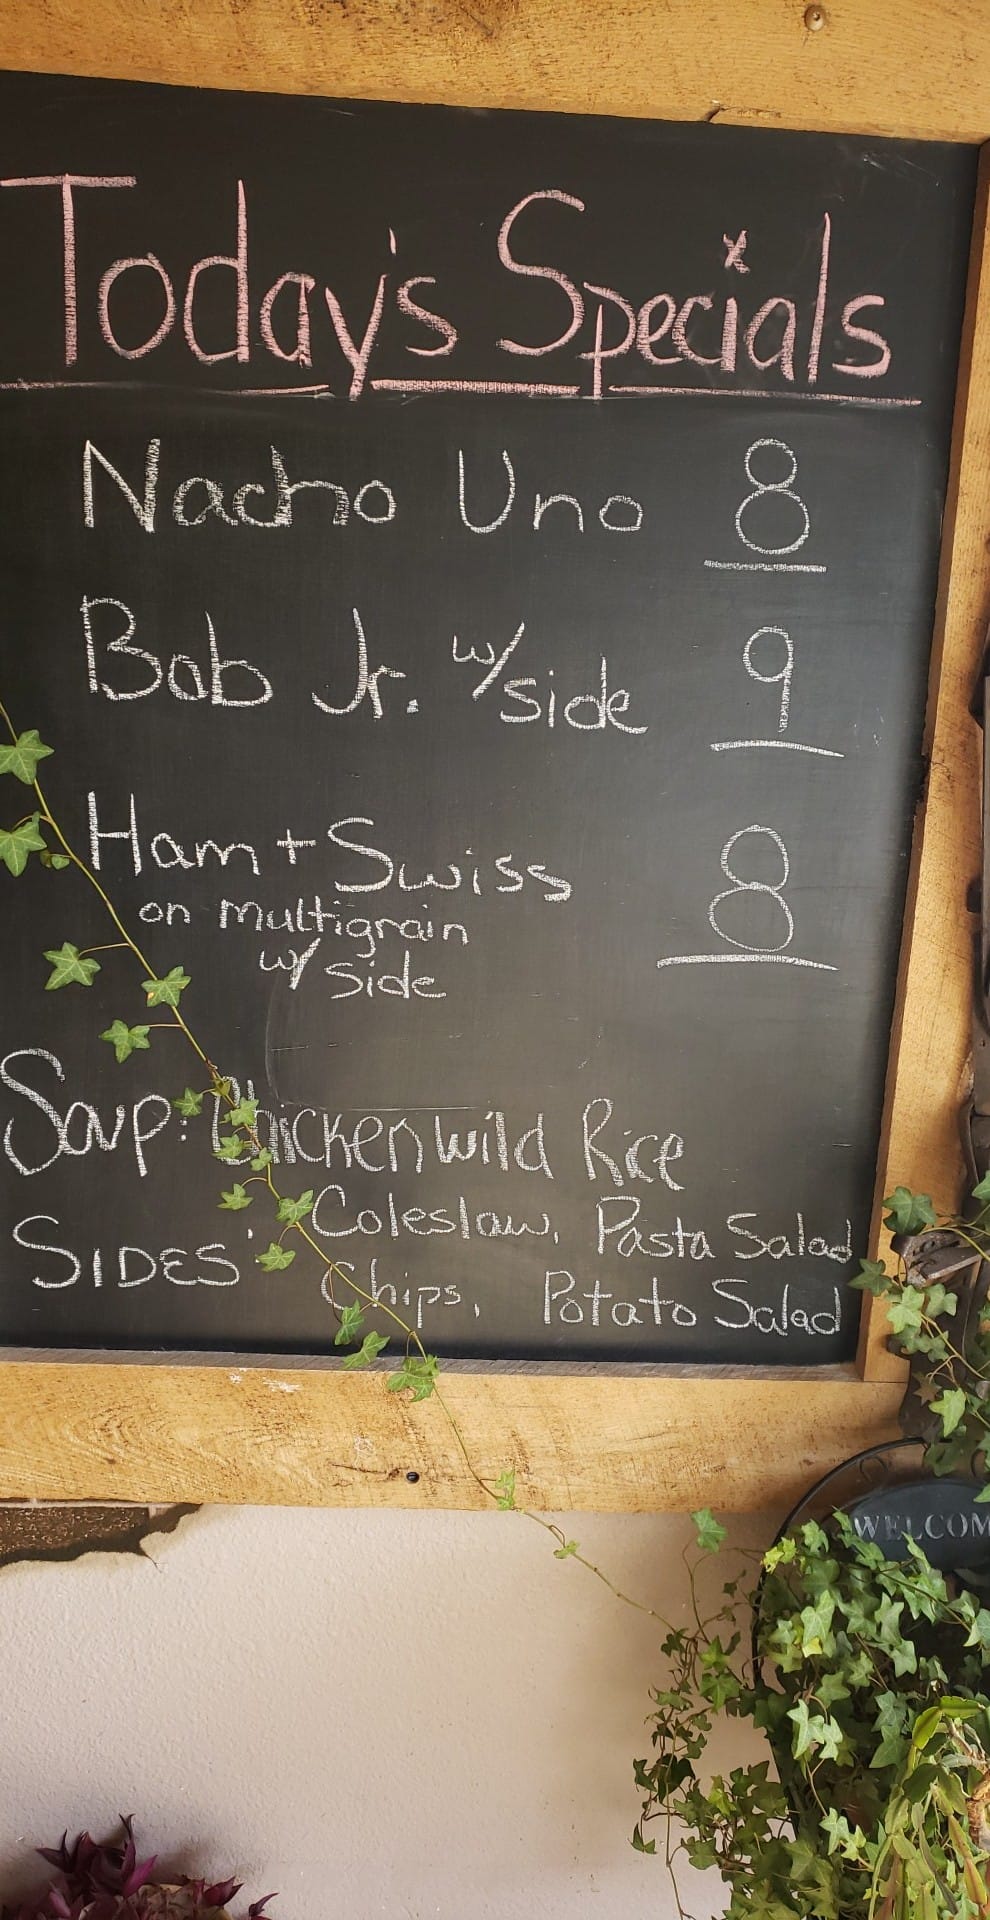 Today's Specials
Nacho Uno 8
Bob Jr. w/ side 9
Ham + Swiss 8
on multigrain
w/ side
Soup: Chicken Wild Rice
SIDES: Coleslaw, Pasta Salad
Chips, Potato Salad
WELCOM